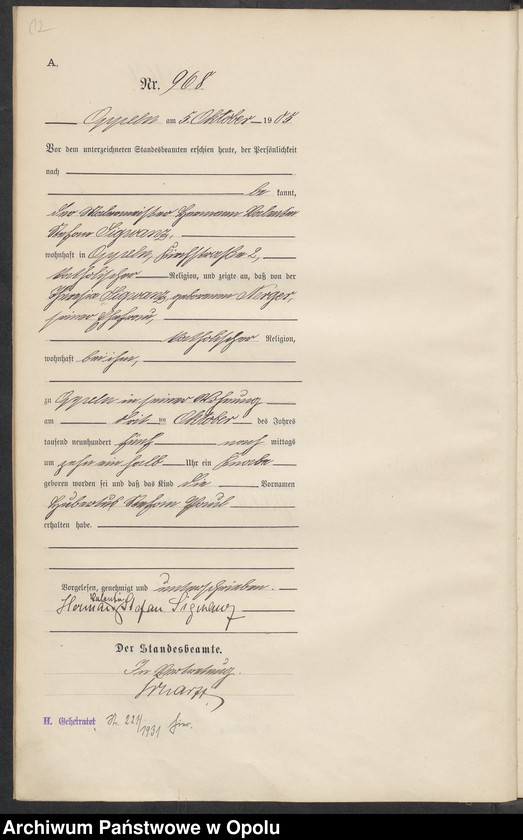 A.
Nr. 968
Oppeln am 5. Oktober 1905
Vor dem unterzeichneten Standesbeamten erschien heute, der Persönlichkeit
nach
be kannt,
der Malermeister Hermann Valentin
Stefan Sigwanz,
wohnhaft in Oppeln, 2,
katholischer Religion, und zeigte an, daß von der
Sigwanz, geborenen Nerger,
seiner Ehefrau,
katholischer Religion,
wohnhaft bei ihm,
zu Oppeln in seiner Wohnung
am Oktober des Jahres
tausend neunhundert fünf nach mittags
um zehn ein halb Uhr ein Knabe
geboren worden sei und daß das Kind die Vornamen
Hubertus Stefan Paul
erhalten habe.
Vorgelesen, genehmigt und unterschrieben.
Hermann Valentin Stefan Sigwanz
Der Standesbeamte.
In Vertretung.
H. Geheiratet Nr. 221/1931
Archiwum Państwowe w Opolu